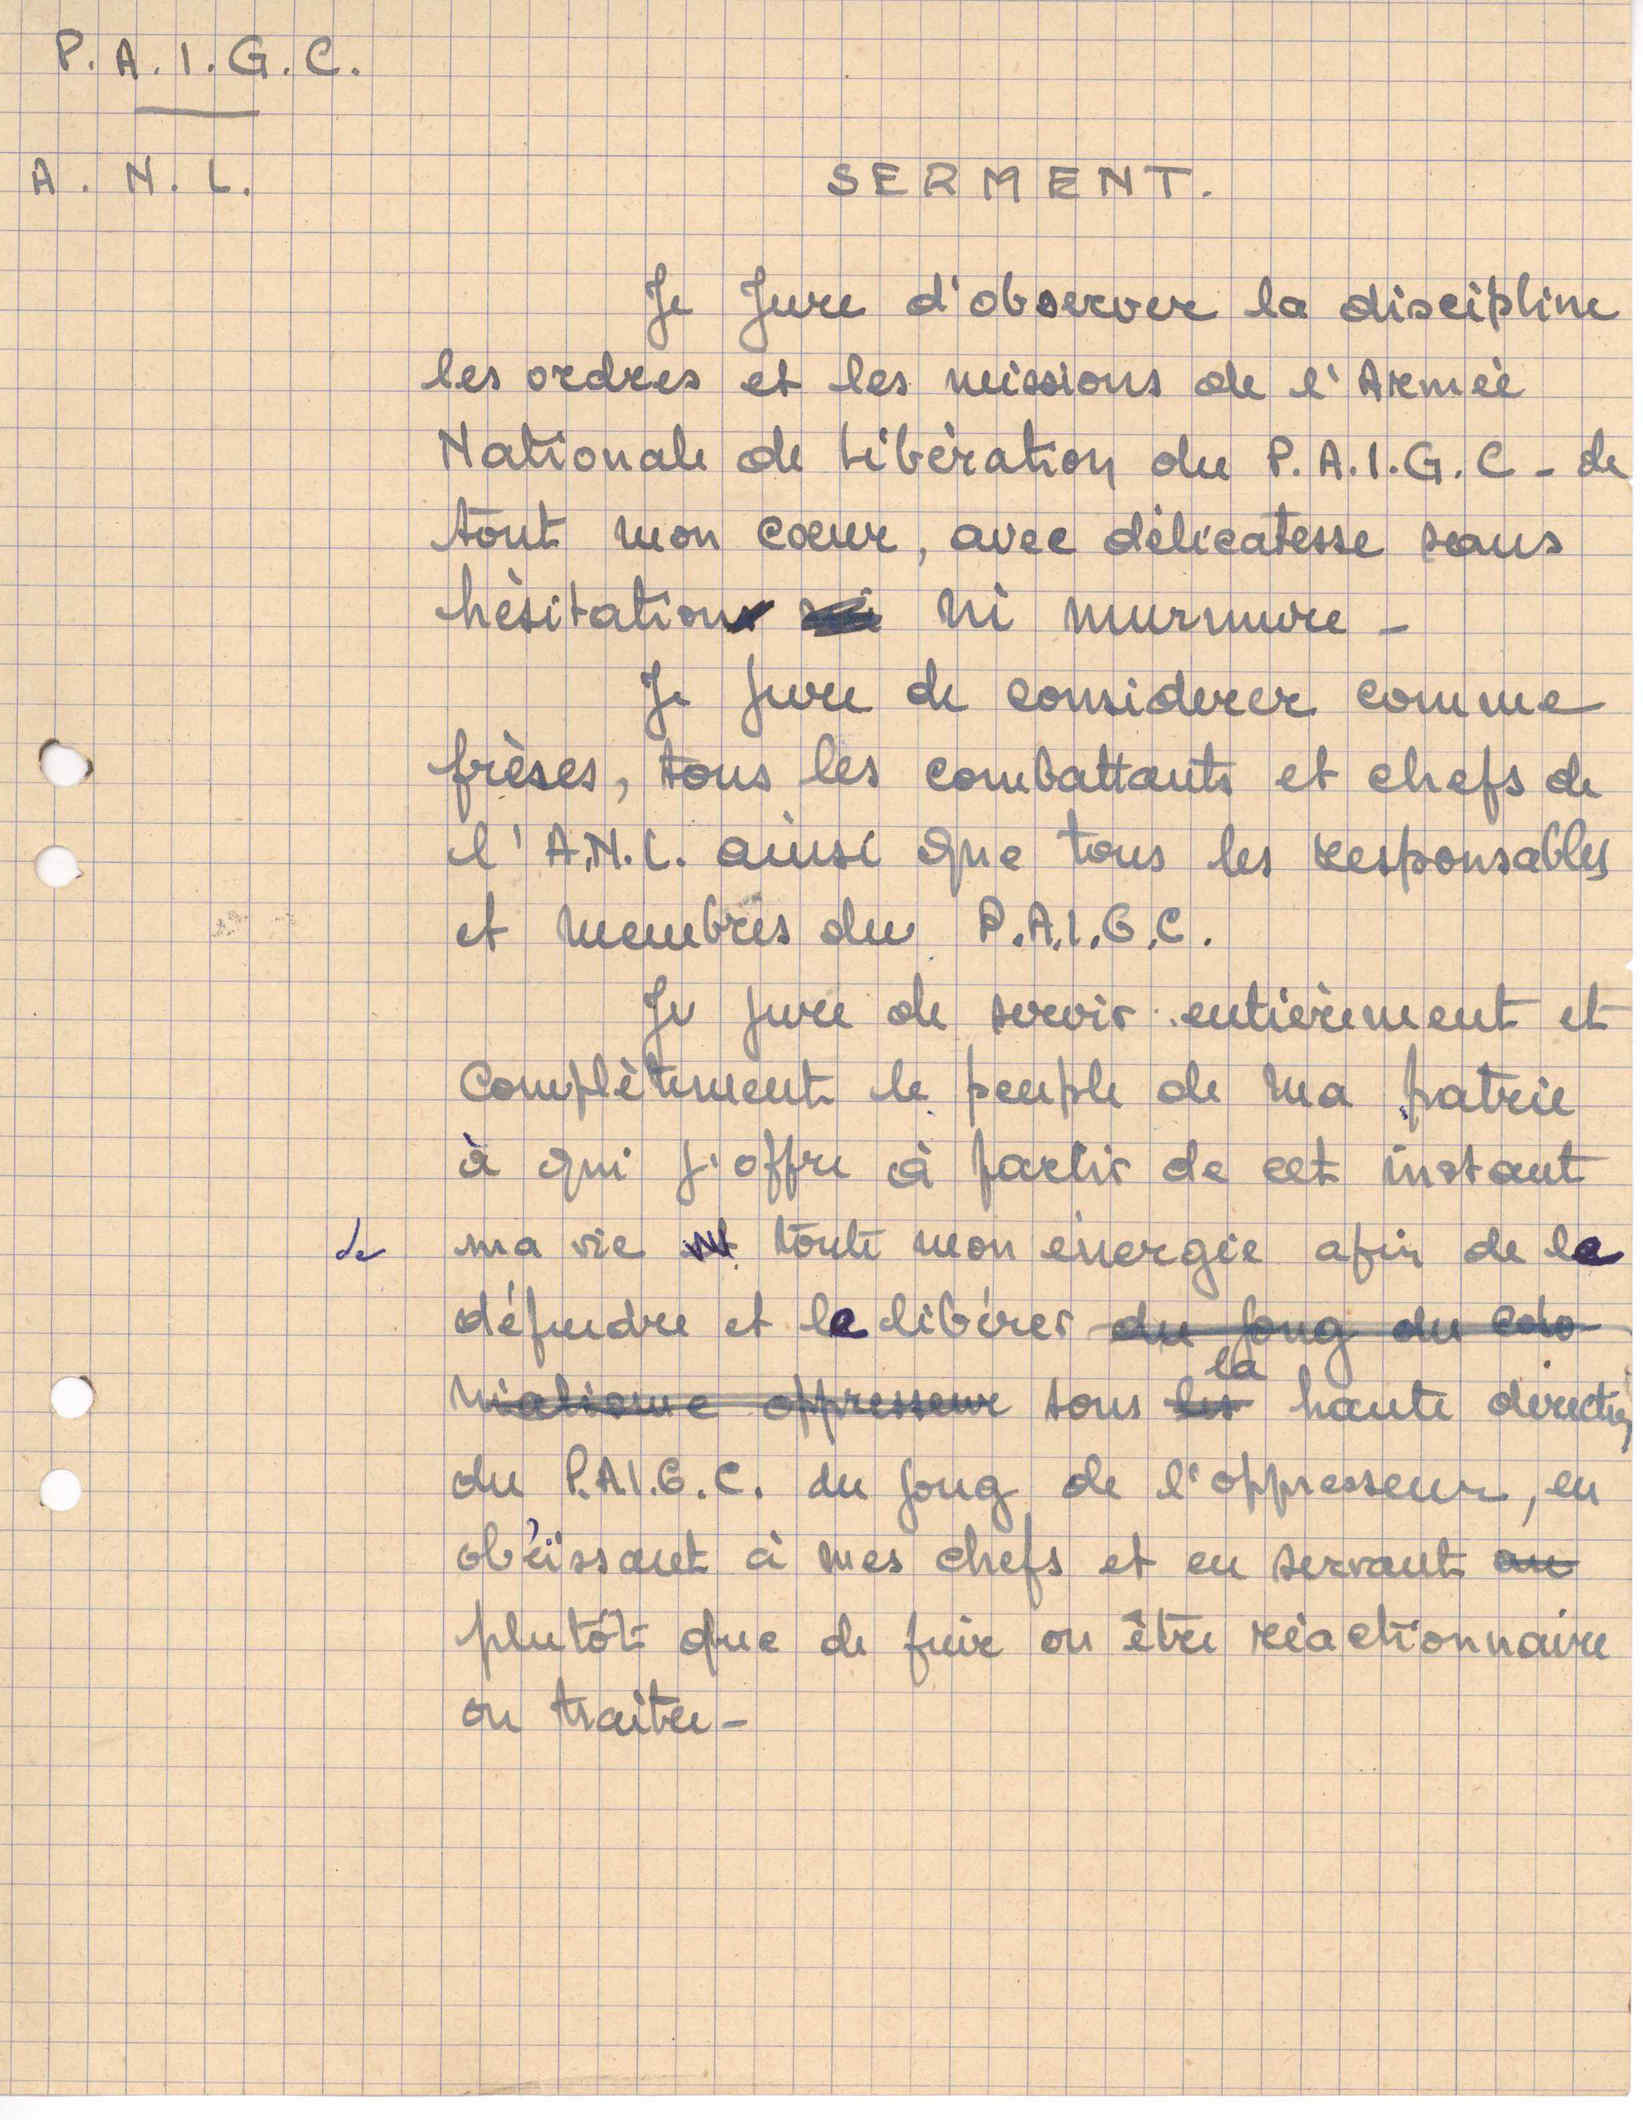 P.A.I.G.C.
A.N.L.
SERMENT.
Je Jure d'observer la discipline
les ordres et les missions de l'Armée
Nationale de Libération du P.A.I.G.C - de
tout mon cœur, avec délicatesse sans
hésitation ni murmure -
Je jure de considerer comme
frères, tous les combattants et chefs de
l'A.N.L. ainsi que tous les responsables
et membres du P.A.I.G.C.
Je jure de servir entièrement et
Complètement le peuple de ma patrie
à qui j'offre à partir de cet instant
ma vie et toute mon énergie afin de le
défendre et le libérer du joug du colo-
nialisme oppresseur sous les la haute direction
du P.A.I.G.C. du joug de l'oppresseur, en
obéissant à mes chefs et en servant au
plutôt que de fuir ou être réactionnaire
ou traitre -